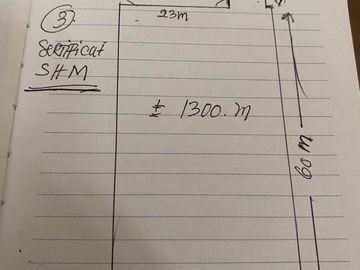 3
23m
Sertificat
SHM
± 1300.m
60 m